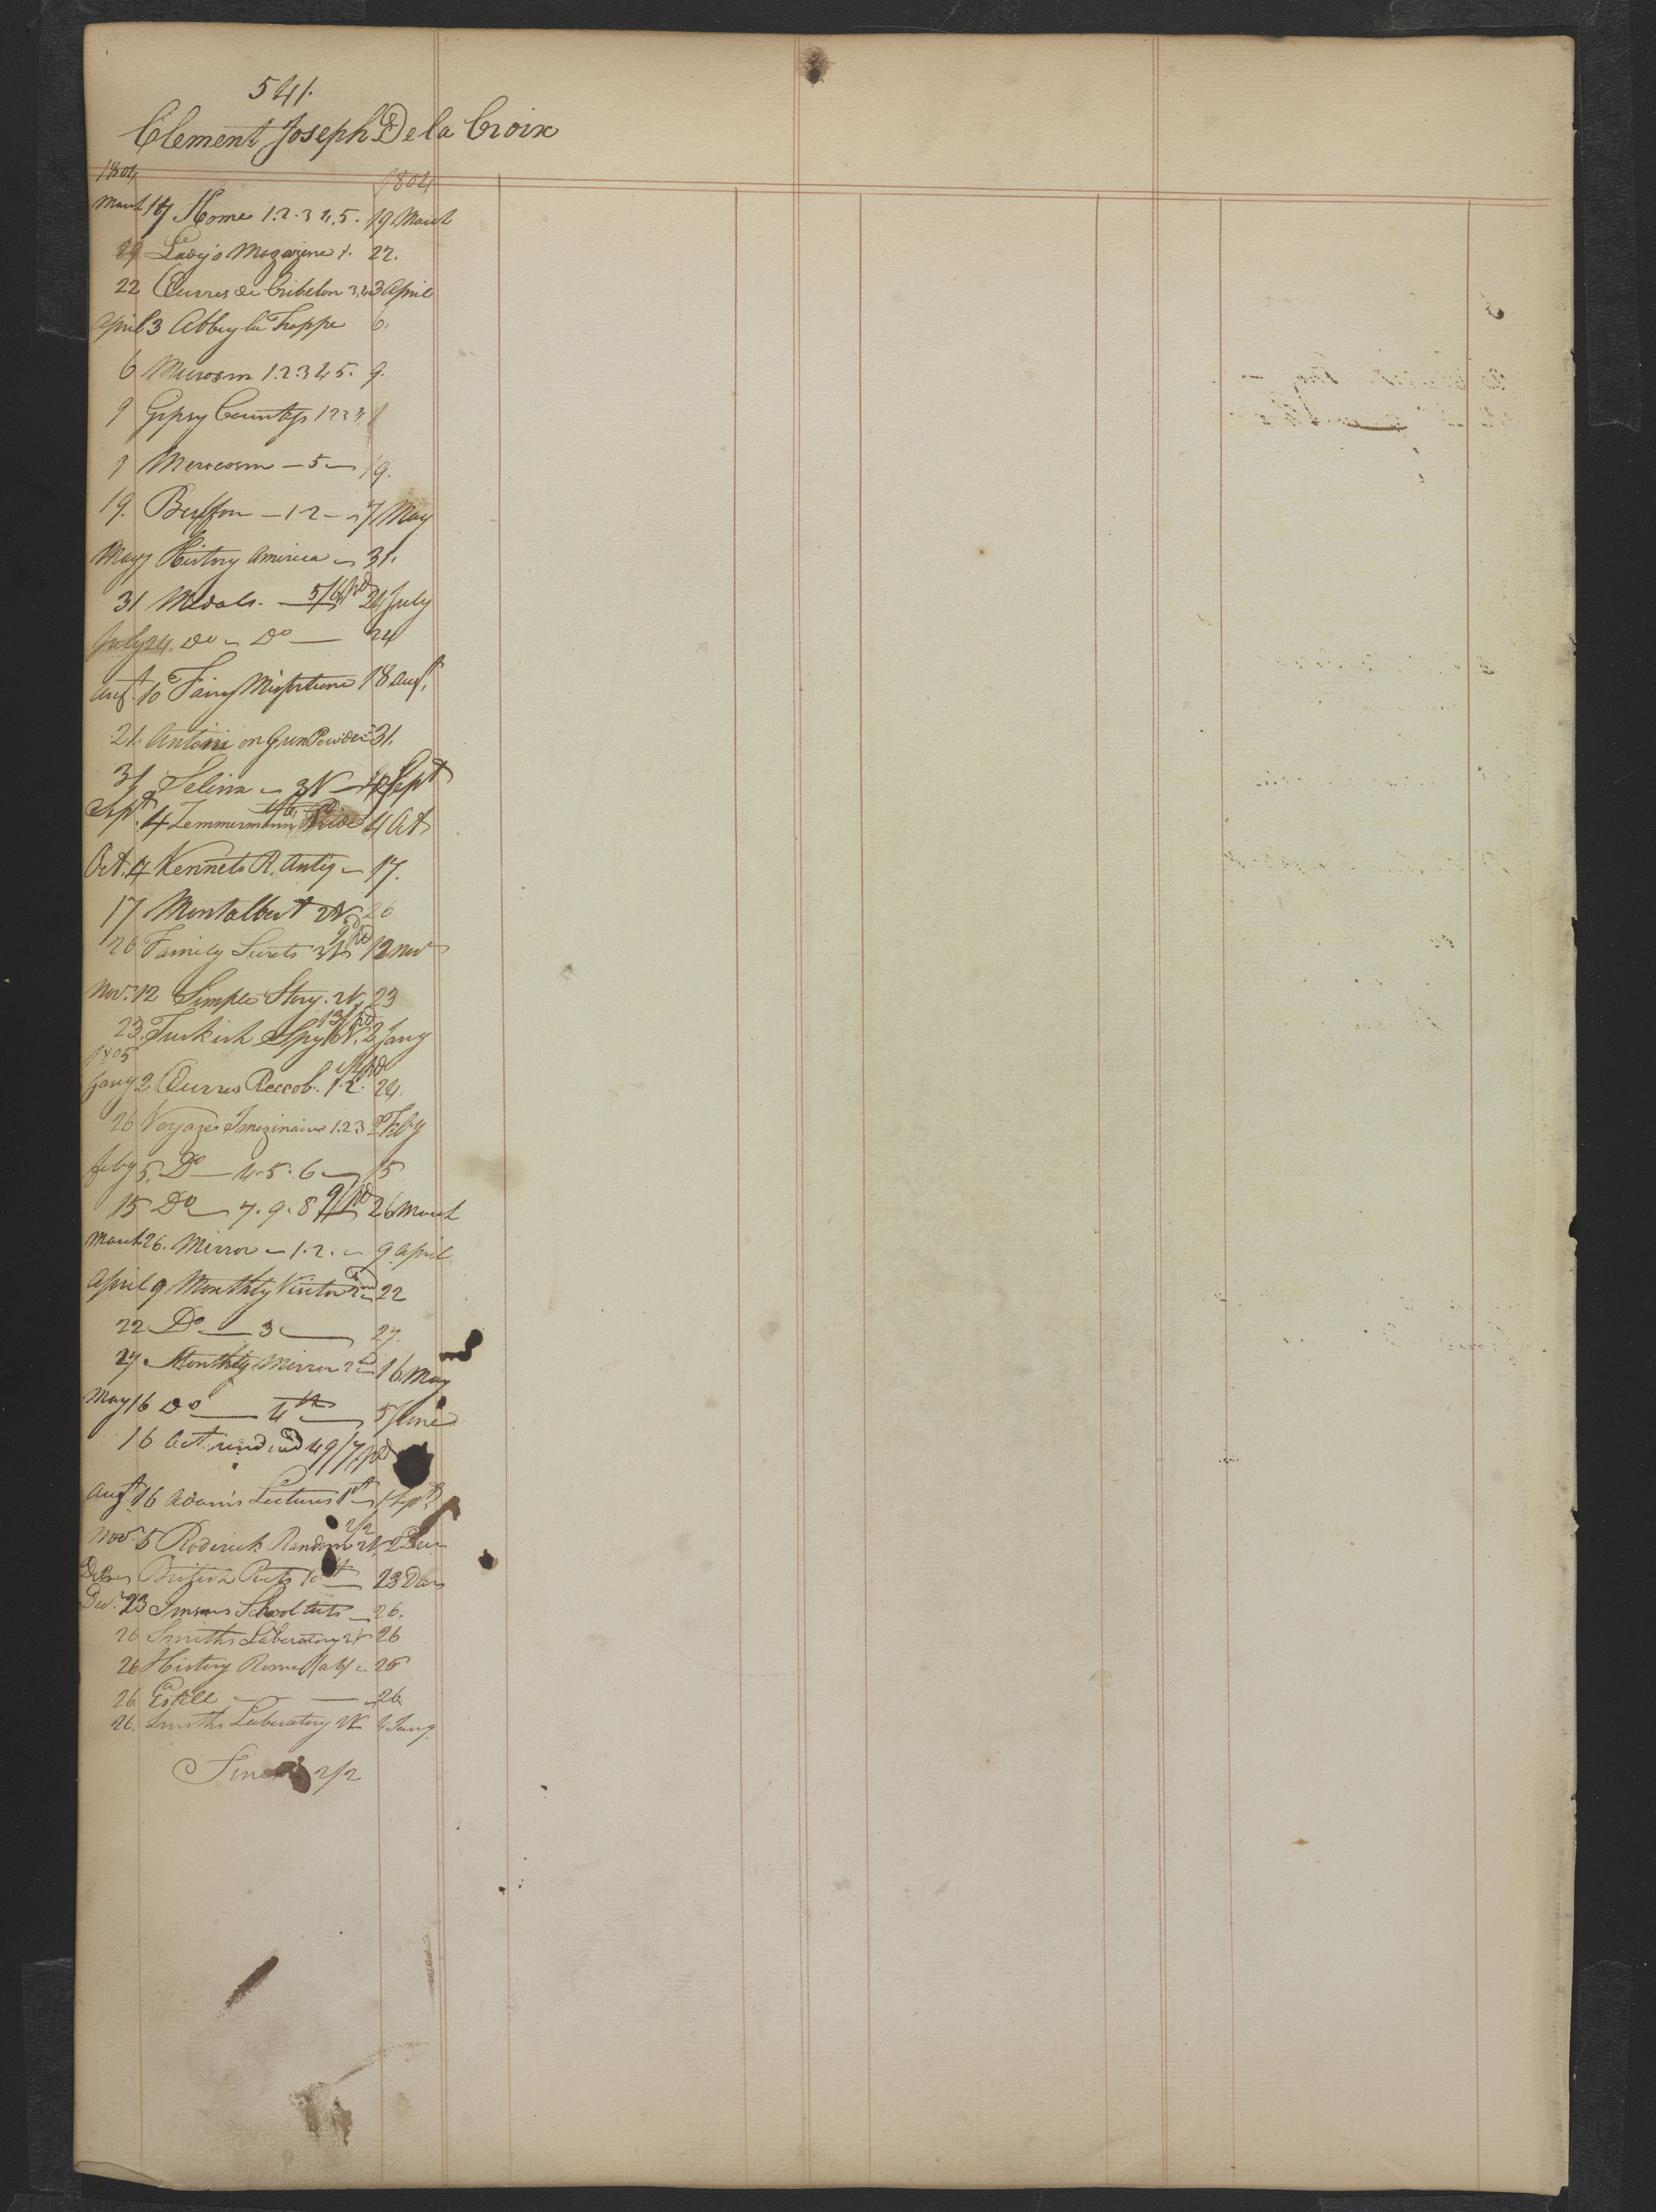 541.
Clement Joseph De la Croix
1804 1804
March 17 Home 1.2.3 4.5. 19 March
19 Lady's Magazine 1. 22.
22 Œuvres de Cribelon 3.4 3 April
April 3 Abbey la Trappe 6.
6 Microsm 1.2.3 4 5. 9.
9 Gypsy Countess 1 2 3 4
9 Merocosm — 5 — 19.
19. Buffon — 1-2 — 7 May
May 7 History America — 31.
31 Medals. — 5/6 pd 24 July
July 24. Do — Do — 24
Augt. 10 Fairy Misfortune 18 Augt.
21. Antoni on Gun Powder 31.
31 Selina — 3V — 4 Sept
Sept. 4 Zemmermann 4 Oct
Oct. 4 Kennets R. Antiq — 17.
17 Montalbert 2V 26
26 Family Secrets 3V 9 pd 12 Nov
Nov. 12 Simple Story. 2V. 23
23. Turkish Spy 6V. 13/ pd 2 Jany
1805
Jany 2 Œuvres Reccob. 1.2. pd 24.
26 Voyages Imaginaire 1.2 3 Feby
Feby 5. Do — 4. 5. 6 — 15
15 Do — 7. 9. 8 9/ pd 26 March
March 26. Mirror — 1. 2. — 9 April
April 9 Monthly Visitor 2nd 22
22 Do — 3 — 27.
27. Monthly Mirror 2d — 16 May
May 16 Do — 4th — 5 June
16 Act rendered 49/7 pd
Augt 16 Adam's Lectures 1st — 1 Sept.
Nov. 5 Roderick Random 2V. 2/2 2 Decr
British Poets 10th — 23 Decr
Decr. 23 Imsons School arts — 26.
26 Smiths Laboratory 2V 26
26 History Rome (ab) — 26
26 Estelle — — 26
26. Smiths Laboratory 2V 4 Jany.
Fines 2/2